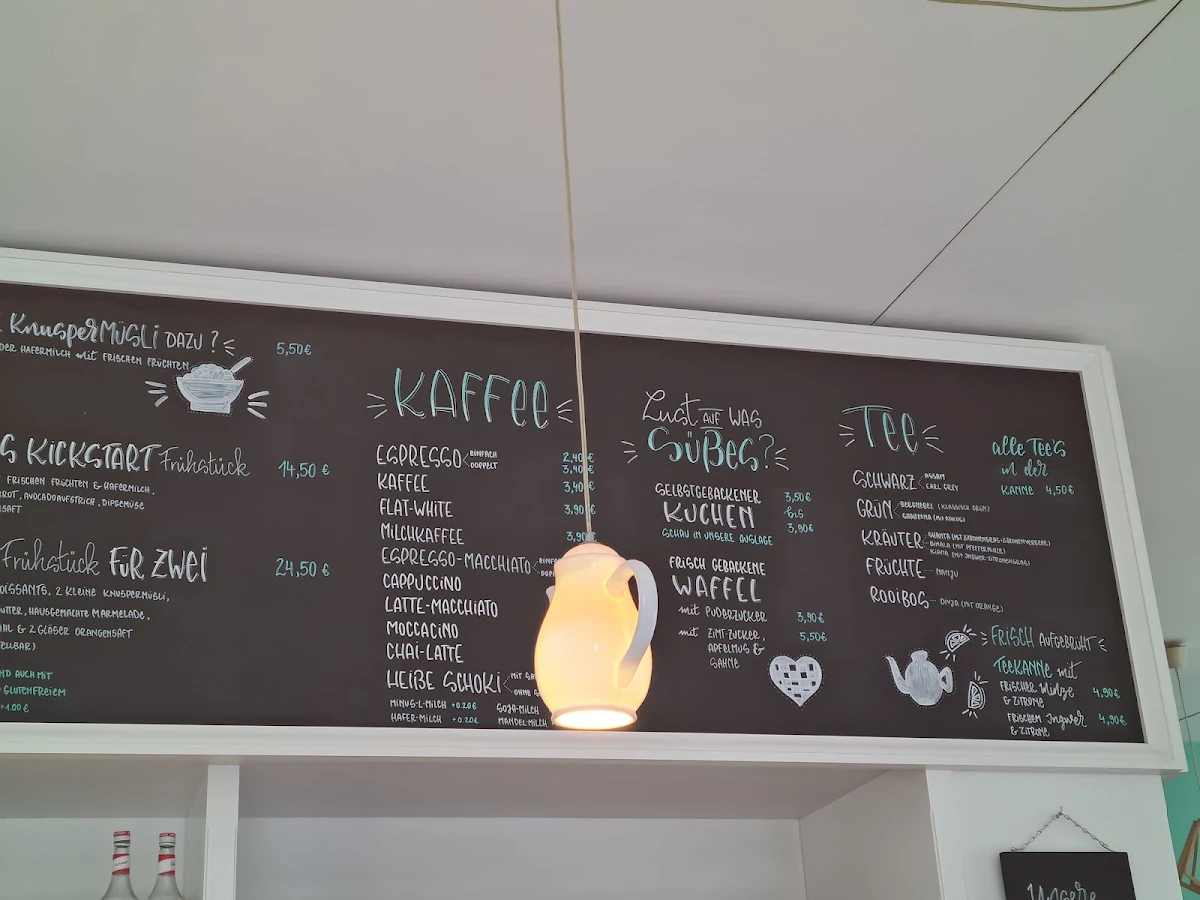 KnuspeRMÜSLi DAZU ?
5,50€
DER HAFERMILCH mit FRISCHEN FRÜCHTEN
KiCKSTART Frühstück
14,50 €
FRISCHEN FRÜCHTEN & HAFERMILCH,
AVOCADOAUFSTRICH, DIPGEMÜSE
SAFT
Frühstück FÜR ZWEi
24,50 €
2 KLEINE KNUSPERMÜSLi,
HAUSGEMACHTE MARMELADE,
& 2 GLÄSER ORANGENSAFT
AUCH MIT
GLUTENFREIEM
+1.00 €
KAFFEE
ESPRESSO
EINFACH
DOPPELT
2,40€
3,40€
KAFFEE
3,40€
FLAT-WHITE
3,90€
MILCHKAFFEE
3,90
ESPRESSO-MACCHIATO
CAPPUCCINO
LATTE-MACCHIATO
MOCCACINO
CHAI-LATTE
HEIßE SCHOKi
MIT
OHNE
MINUS-L-MILCH +0.20€
SOJA-MILCH
HAFER-MILCH +0.20€
MANDEL-MILCH
Lust AUF WAS
SÜßES?
SELBSTGEBACKENER
KUCHEN
3,50€
bis
3,90€
SCHAU IN UNSERE AUSLAGE
FRISCH GEBACKENE
WAFFEL
mit PUDERZUCKER
3,90€
mit ZIMT-ZUCKER,
APFELMUS &
SAHNE
5,50€
TEE
alle TEE'S
in der
KANNE 4,50€
SCHWARZ
ASSAM
EARL GREY
GRÜN
BERGNEBEL (KLASSISCH GRÜN)
(MIT KOKOS)
KRÄUTER
(MIT PFEFFERMINZE)
(MIT INGWER-ZITRONENGRAS)
FRÜCHTE
ROOIBOS
(MIT ORANGE)
FRISCH AUFGEBRÜHT
TEEKANNE mit
FRISCHER Minze
& ZITRONE
4,90€
FRISCHEM Ingwer
& ZITRONE
4,90€
Unsere